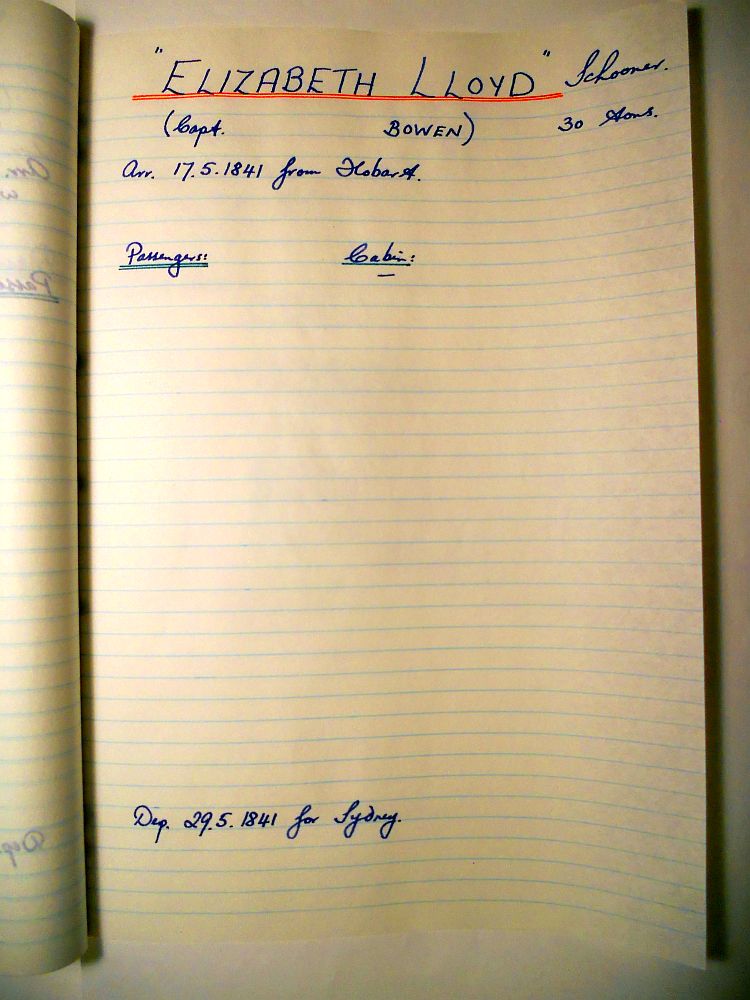 "ELIZABETH LLOYD" Schooner.
(Capt. BOWEN) 30 tons.
Arr. 17.5.1841 from Hobart.
Passengers: Cabin:
—
Dep. 29.5.1841 for Sydney.